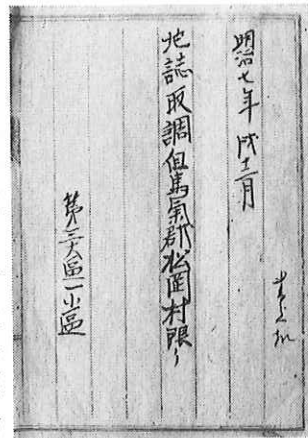 明治七年 戌十二月
地誌取調但馬氣郡松岡村限り
第三大區一小區